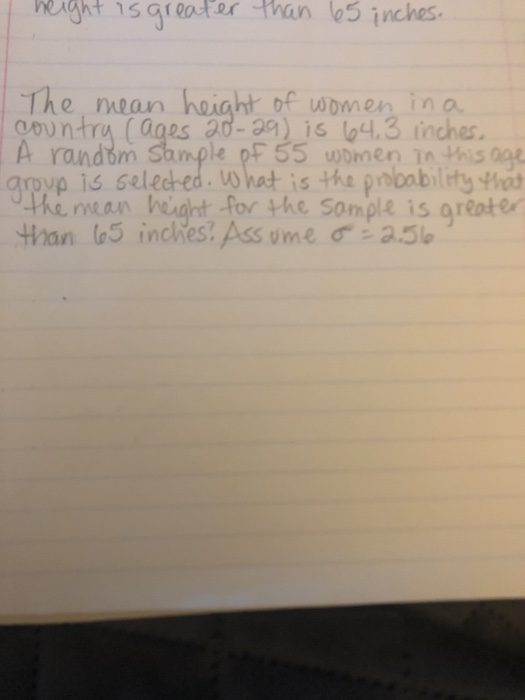 height is greater than 65 inches.
The mean height of women in a
country (ages 20-29) is 64.3 inches.
A random sample of 55 women in this age
group is selected. What is the probability that
the mean height for the sample is greater
than 65 inches? Assume σ = 2.56